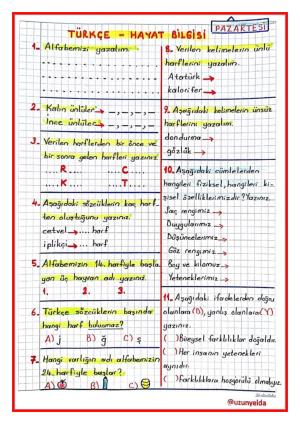 PAZARTESİ
TÜRKÇE - HAYAT BİLGİSİ
1- Alfabemizi yazalım.
2- Kalın ünlüler → -, -, -, -
İnce ünlüler → -, -, -, -
3- Verilen harflerden bir önce ve
bir sonra gelen harfleri yazınız.
.... R .... .... C ....
.... K .... .... T ....
4- Aşağıdaki sözcüklerin kaç harf-
ten oluştuğunu yazınız.
cetvel → .... harf
iplikçi → .... harf
5- Alfabemizin 14. harfiyle başla-
yan üç hayvan adı yazınız.
1. 2. 3.
6- Türkçe sözcüklerin başında
hangi harf bulunmaz?
A) j B) ğ C) ş
7- Hangi varlığın adı alfabemizin
24. harfiyle başlar?
A) B) C)
8- Verilen kelimelerin ünlü
harflerini yazalım.
Atatürk →
kalorifer →
9- Aşağıdaki kelimelerin ünsüz
harflerini yazalım.
dondurma →
gözlük →
10- Aşağıdaki cümlelerden
hangileri fiziksel, hangileri ki-
şisel özelliklerimizdir? Yazınız.
Saç rengimiz →
Duygularımız →
Düşüncelerimiz →
Göz rengimiz →
Boy ve kilomuz →
Yeteneklerimiz →
11- Aşağıdaki ifadelerden doğru
olanlara (D), yanlış olanlara (Y)
yazınız.
( ) Bireysel farklılıklar doğaldır.
( ) Her insanın yetenekleri
aynıdır.
( ) Farklılıklara hoşgörülü olmalıyız.
@uzunyelda